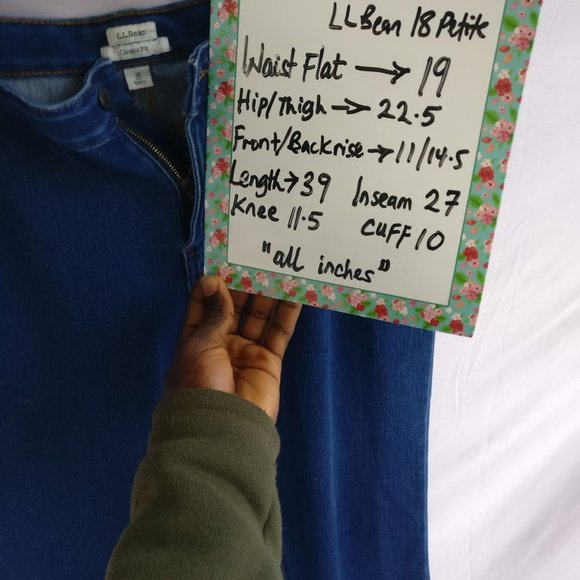 L.L.Bean
Classic Fit
18
LLBean 18 Petite
Waist Flat → 19
Hip/Thigh → 22.5
Front/Backrise → 11/14.5
Length → 39 Inseam 27
Knee 11.5 CUFF 10
"all inches"